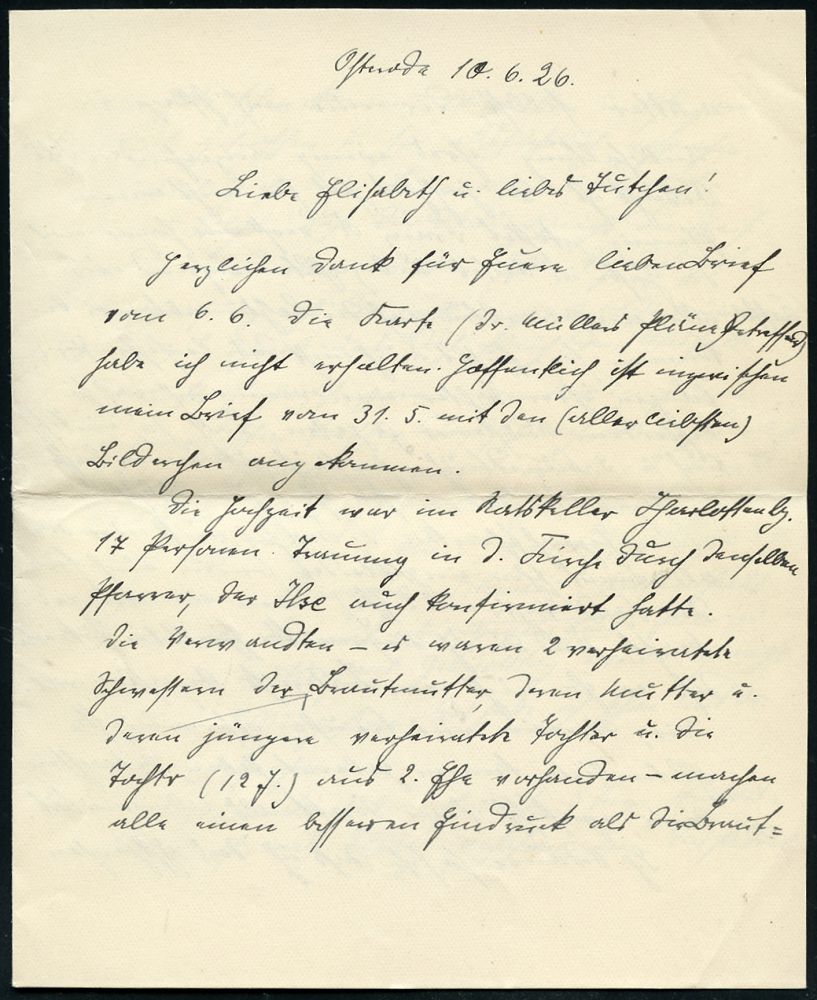 Osterode 10.6.26.
Liebe Elisabeth u. liebes Tutchen!
Herzlichen Dank für Euern lieben Brief
vom 6.6. Die Karte (Dr. Müllers Pläne betreffend)
habe ich nicht erhalten. Hoffentlich ist inzwischen
mein Brief vom 31.5. mit den (allerliebsten)
Bilderchen angekommen.
Die Hochzeit war im Ratskeller Charlottenbg.
17 Personen. Trauung in d. Kirche durch denselben
Pfarrer, der Ilse auch konfirmiert hatte.
Die Verwandten – es waren 2 verheiratete
Schwestern der Brautmutter, deren Mutter u.
deren jüngere verheiratete Tochter u. die
Tochter (12 J.) aus 2. Ehe vorhanden – machen
alle einen besseren Eindruck als die Braut=